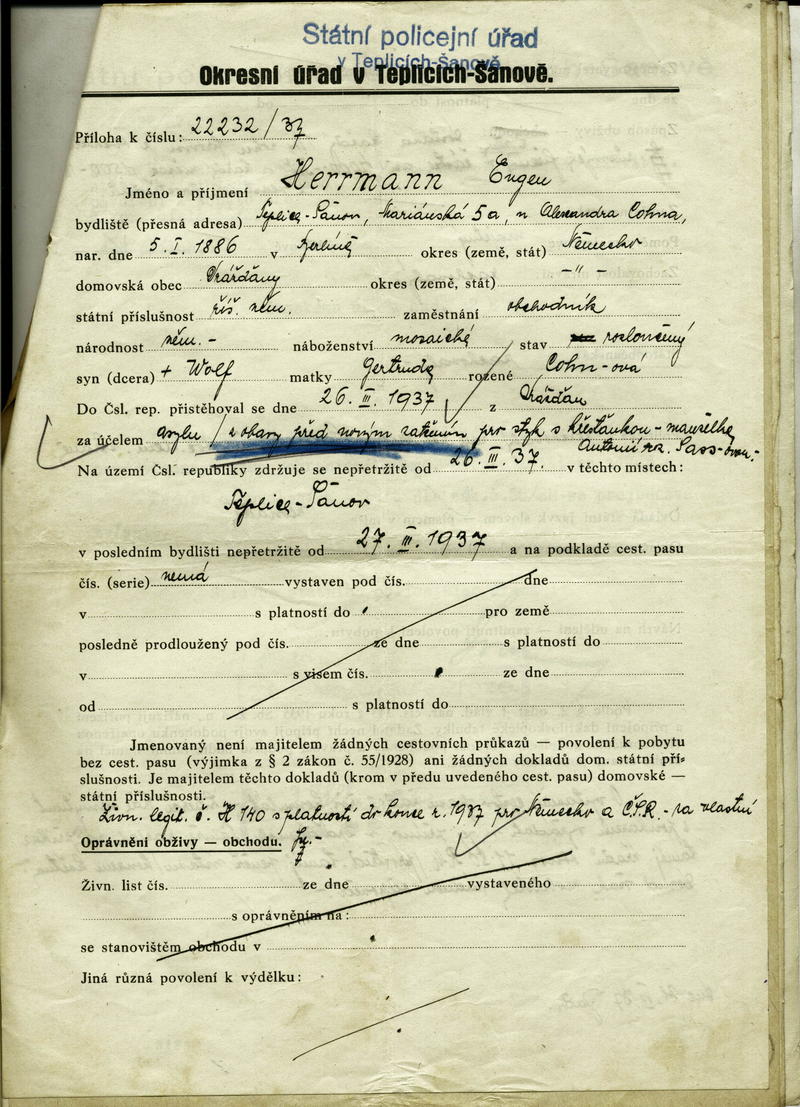 Státní policejní úřad
v Teplicích-Šanově
Okresní úřad v Teplicích-Šanově.
Příloha k číslu: 22232/37
Jméno a příjmení Herrmann Eugen
bydliště (přesná adresa) Teplice-Šanov, Mariánská 5a, u Alexandra Cohna,
nar. dne 5. I. 1886 v Berlíně okres (země, stát) Německo
domovská obec Drážďany okres (země, stát) -"-
státní příslušnost říš. něm. zaměstnání obchodník
národnost něm. - náboženství mosaické stav rozloučený
syn (dcera) + Wolf matky Gertrudy rozené Cohn-ová
Do Čsl. rep. přistěhoval se dne 26. III. 1937 z Drážďan
za účelem asylu / z obavy před novým zatčením pro styk s křesťankou - manželkou
Na území Čsl. republiky zdržuje se nepřetržitě od 26. III. 37. v těchto místech:
Teplice-Šanov
v posledním bydlišti nepřetržitě od 27. III. 1937 a na podkladě cest. pasu
čís. (serie) nemá vystaven pod čís. dne
v s platností do pro země
posledně prodloužený pod čís. ze dne s platností do
v s visem čís. ze dne
od s platností do
Jmenovaný není majitelem žádných cestovních průkazů — povolení k pobytu
bez cest. pasu (výjimka z § 2 zákon č. 55/1928) ani žádných dokladů dom. státní pří-
slušnosti. Je majitelem těchto dokladů (krom v předu uvedeného cest. pasu) domovské —
státní příslušnosti.
Živn. legit. č. H 140 s platností do konce r. 1937 pro Německo a ČSR. - na vlastní
Oprávnění obživy — obchodu.
Živn. list čís. ze dne vystaveného
s oprávněním na:
se stanovištěm obchodu v
Jiná různá povolení k výdělku: